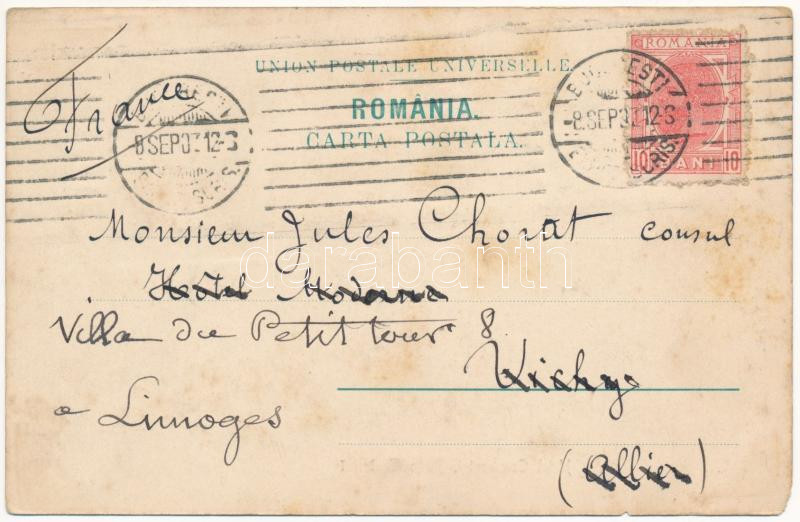 France
UNION POSTALE UNIVERSELLE
ROMÂNIA.
CARTA POSTALA.
ROMANIA
10 BANI 10
8 SEP 07 12-S
8 SEP 07 12-S
Monsieur Jules Chorat consul
Hôtel Moderne
Villa du Petit tour 8
Vichy
a Limoges
(Allier)
darabanth